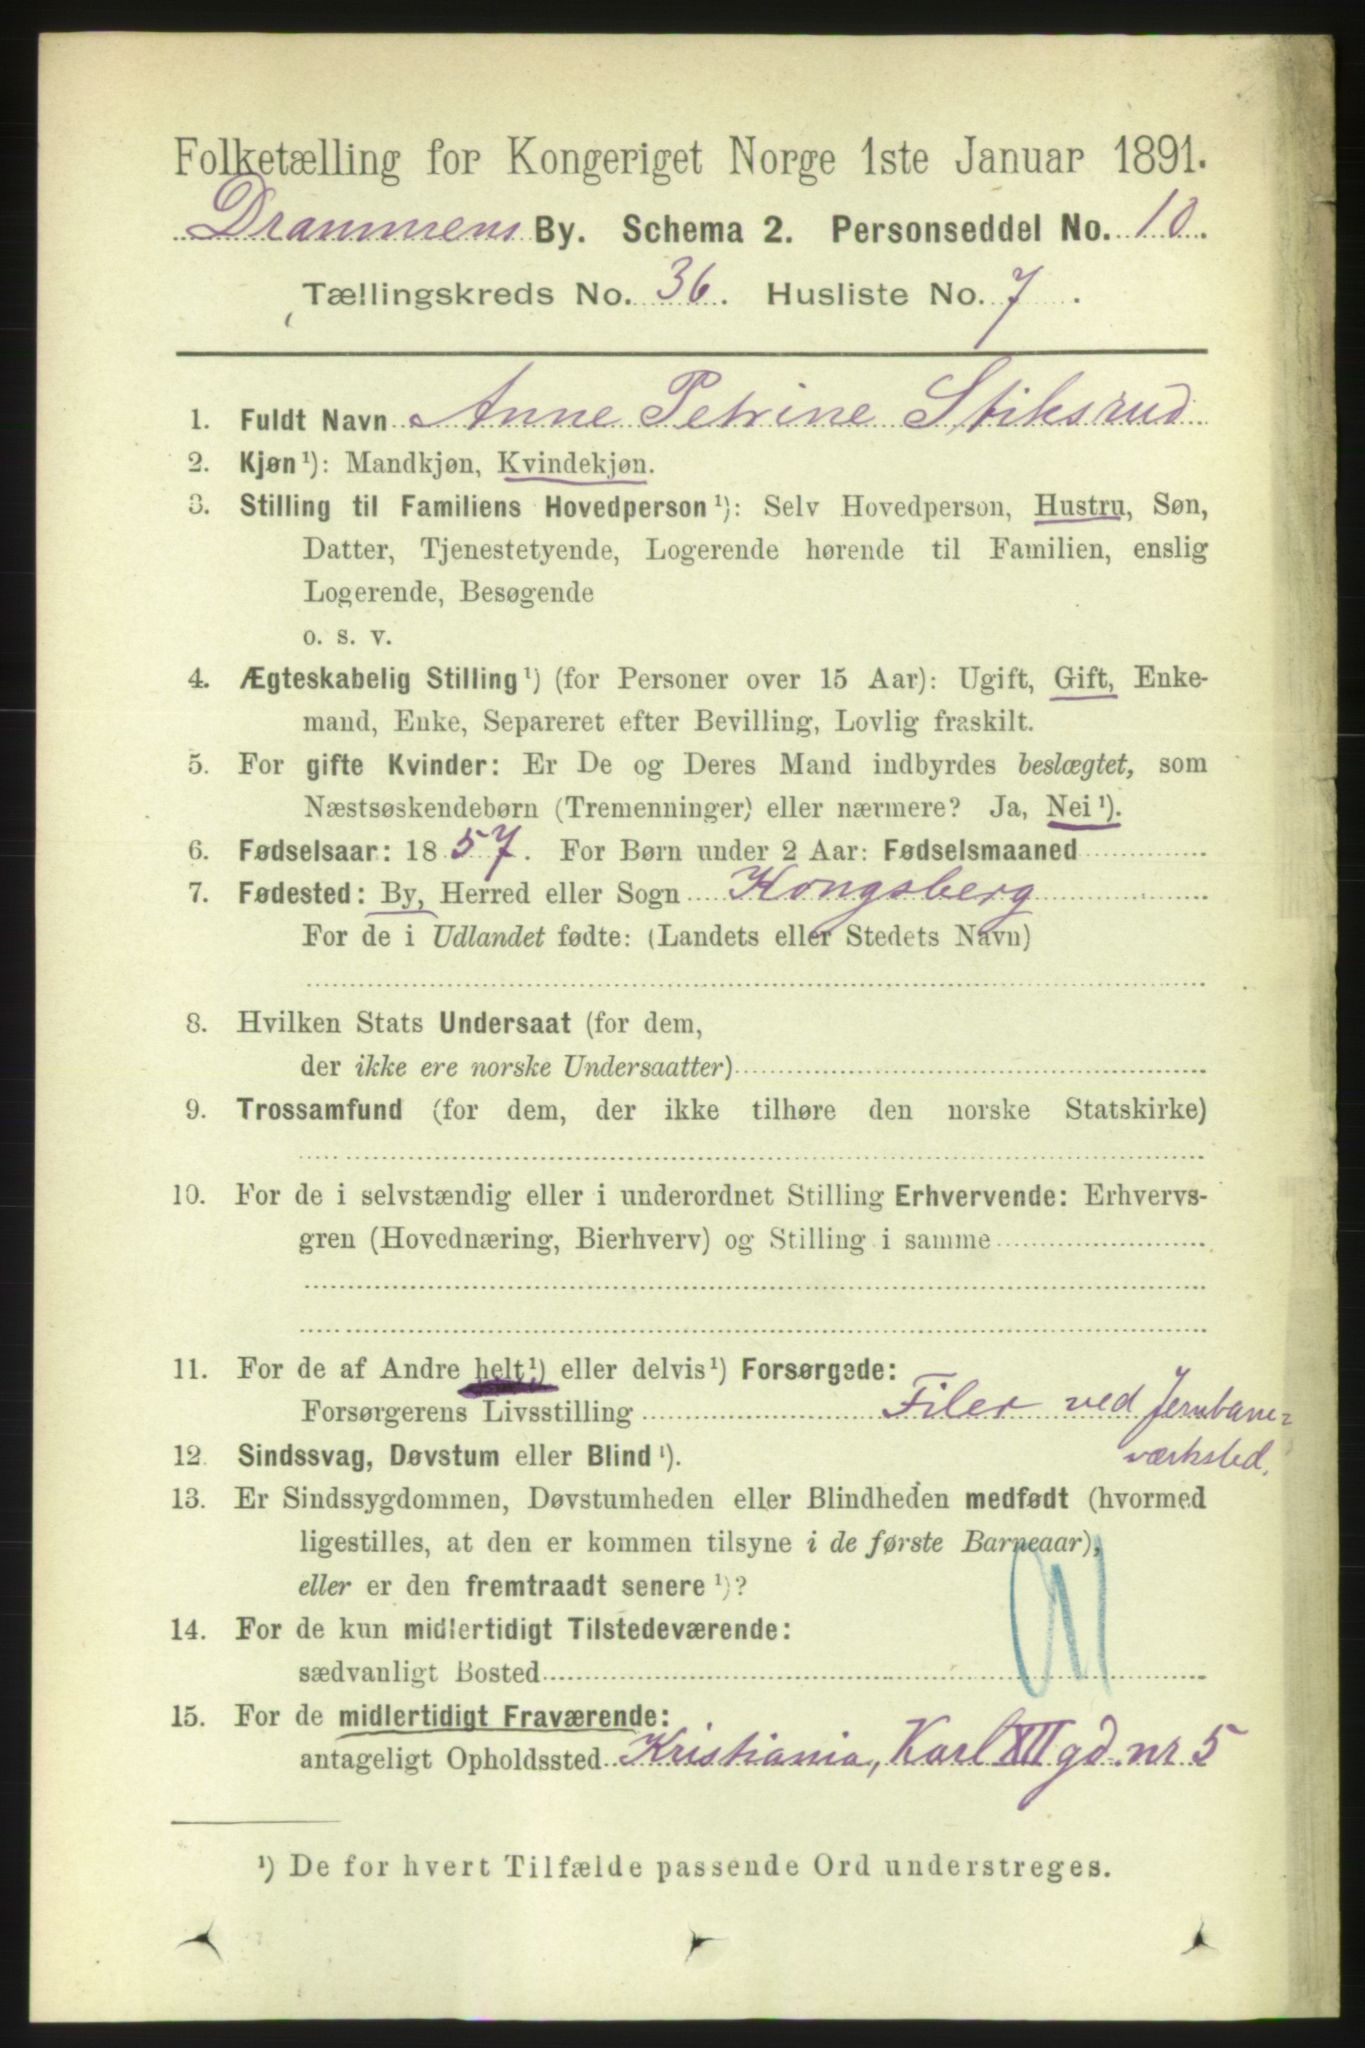 Folketælling for Kongeriget Norge 1ste Januar 1891.
Drammens By. Schema 2. Personseddel No. 10.
Tællingskreds No. 36. Husliste No. 7.
1. Fuldt Navn Anne Petrine Stiksrud
2. Kjøn¹): Mandkjøn, Kvindekjøn.
3. Stilling til Familiens Hovedperson¹): Selv Hovedperson, Hustru, Søn,
Datter, Tjenestetyende, Logerende hørende til Familien, enslig
Logerende, Besøgende
o. s. v.
4. Ægteskabelig Stilling¹) (for Personer over 15 Aar): Ugift, Gift, Enke-
mand, Enke, Separeret efter Bevilling, Lovlig fraskilt.
5. For gifte Kvinder: Er De og Deres Mand indbyrdes beslægtet, som
Næstsøskendebørn (Tremenninger) eller nærmere? Ja, Nei¹).
6. Fødselsaar: 1857. For Børn under 2 Aar: Fødselsmaaned
7. Fødested: By, Herred eller Sogn Kongsberg
For de i Udlandet fødte: (Landets eller Stedets Navn)
8. Hvilken Stats Undersaat (for dem,
der ikke ere norske Undersaatter)
9. Trossamfund (for dem, der ikke tilhøre den norske Statskirke)
10. For de i selvstændig eller i underordnet Stilling Erhvervende: Erhvervs-
gren (Hovednæring, Bierhverv) og Stilling i samme
11. For de af Andre helt¹) eller delvis¹) Forsørgede:
Forsørgerens Livsstilling Filer ved Jernbane=
værksted.
12. Sindssvag, Døvstum eller Blind¹).
13. Er Sindssygdommen, Døvstumheden eller Blindheden medfødt (hvormed
ligestilles, at den er kommen tilsyne i de første Barneaar),
eller er den fremtraadt senere¹)?
14. For de kun midlertidigt Tilstedeværende:
sædvanligt Bosted
15. For de midlertidigt Fraværende:
antageligt Opholdssted Kristiania, Karl XII gd. nr 5
¹) De for hvert Tilfælde passende Ord understreges.